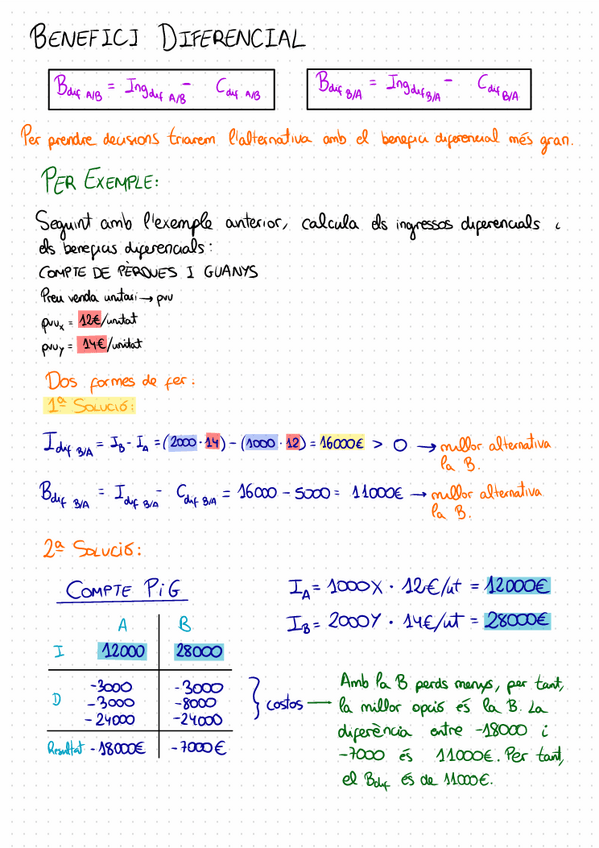 BENEFICI DIFERENCIAL
Bdif A/B = Ingdif A/B - Cdif A/B
Bdif B/A = Ingdif B/A - Cdif B/A
Per prendre decisions triarem l'alternativa amb el benefici diferencial més gran.
PER EXEMPLE:
Seguint amb l'exemple anterior, calcula els ingressos diferencials i
els beneficis diferencials:
COMPTE DE PÈRDUES I GUANYS
Preu venda unitari → pvu
pvux = 12€/unitat
pvuy = 14€/unidat
Dos formes de fer:
1ª SOLUCIÓ:
Idif B/A = IB - IA = (2000 · 14) - (1000 · 12) = 16000€ > 0 → millor alternativa
la B.
Bdif B/A = Idif B/A - Cdif B/A = 16000 - 5000 = 11000€ → millor alternativa
la B.
2ª SOLUCIÓ:
COMPTE PiG
IA = 1000X · 12€/ut = 12000€
IB = 2000Y · 14€/ut = 28000€
A B
I 12000 28000
-3000 -3000
D -3000 -8000
-24000 -24000
Resultat -18000€ -7000€
} costos →
Amb la B perds menys, per tant,
la millor opció és la B. La
diferència entre -18000 i
-7000 és 11000€. Per tant,
el Bdif és de 11000€.